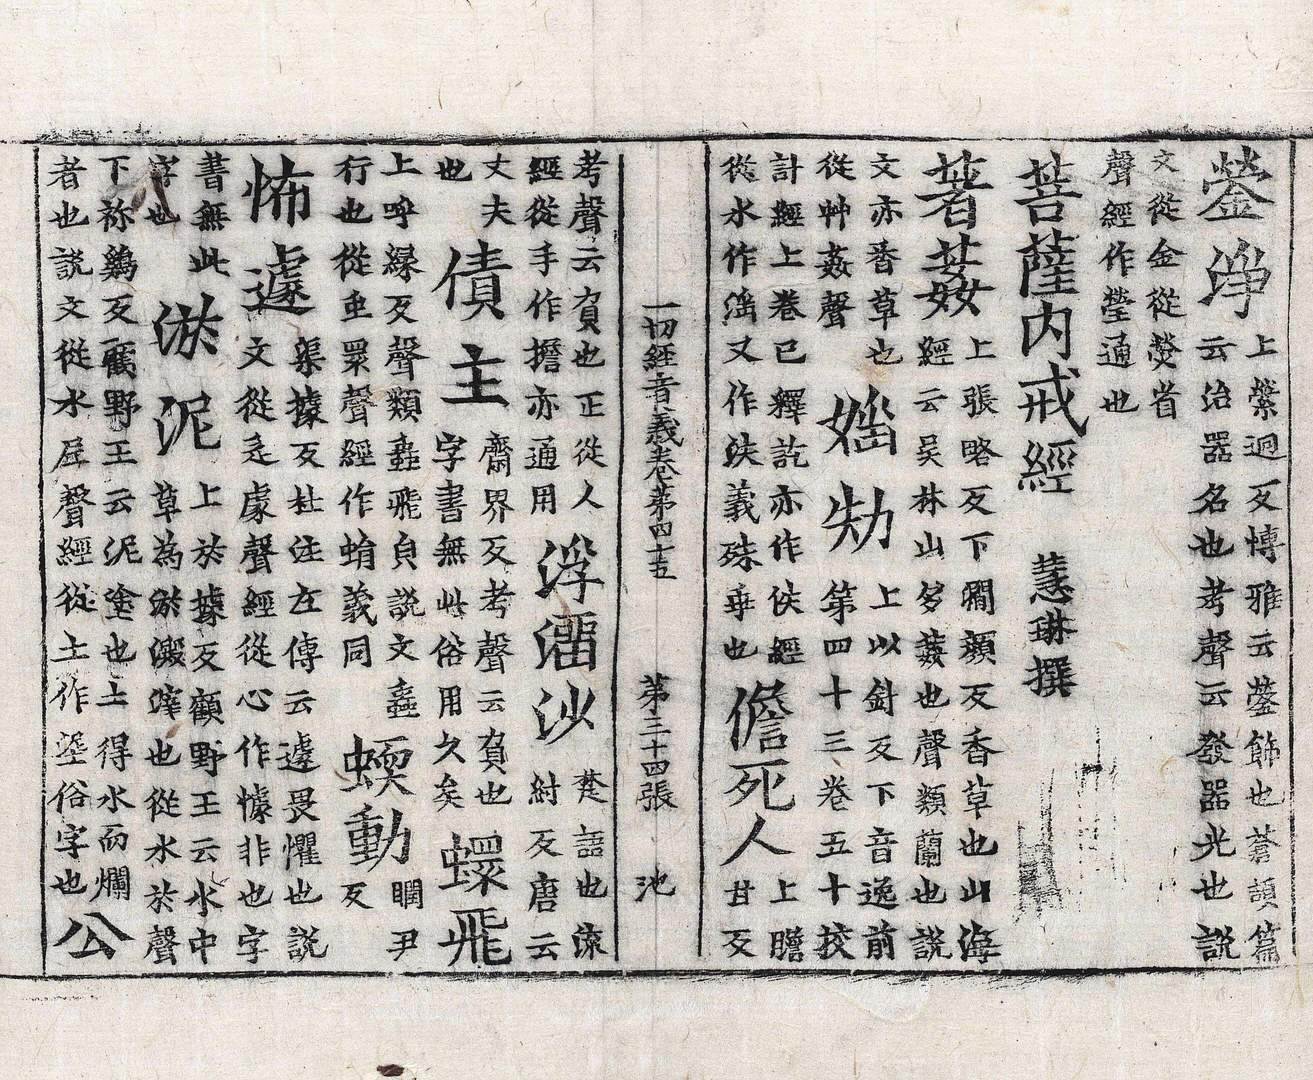 鎣淨 上縈迥反博雅云鎣飾也蒼頡篇
云治器名也考聲云發器光也說
文從金從熒省
聲經作瑩通也
菩薩內戒經 慧琳撰
著葌 上張略反下𥳑顏反香草也山海
經云吳林山多葌也聲類蘭也說
文亦香草也
從艸姦聲
婬劮 上以針反下音逸前
第四十三卷五十挍
計經上卷已釋訖亦作佚經
從水作滛又作泆義殊乖也
儋死人 上膽
甘反
考聲云負也正從人
經從手作擔亦通用
浮㽞沙 楚語也流
紂反唐云
丈夫
也
債主 齋界反考聲云負也
字書無此俗用久矣
蠉飛
上呼緣反聲類蟲飛皃說文蟲
行也從虫睘聲經作蜎義同
蝡動 瞤尹
反
怖遽 渠據反杜注左傳云遽畏懼也說
文從辵豦聲經從心作懅非也字
書無此
字也
淤泥 上於據反顧野王云水中
草為淤澱滓也從水於聲
下祢鷄反顧野王云泥塗也土得水而爛
者也說文從水𡰥聲經從土作埿俗字也
公
一切經音義卷第四十五 第三十四張 池